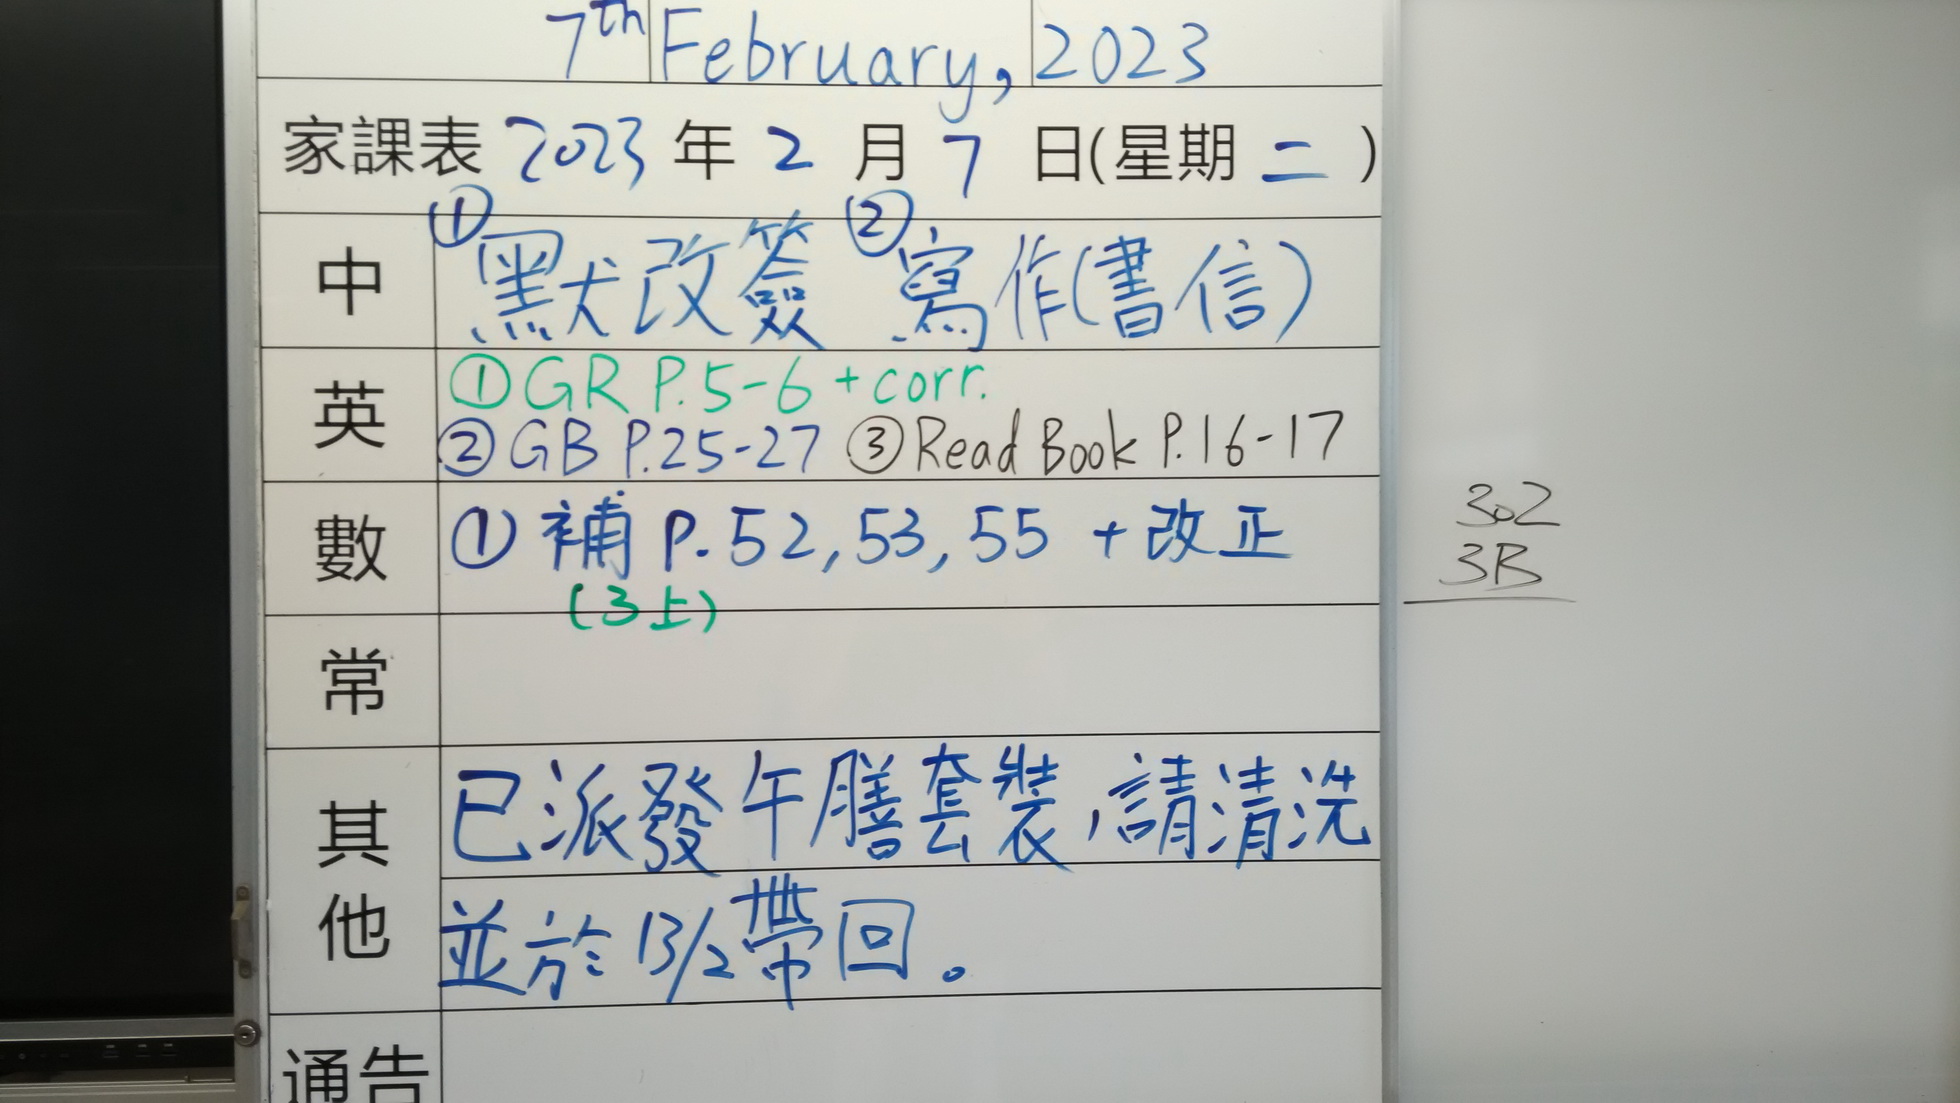 7th February, 2023
家課表 2023 年 2 月 7 日(星期 二 )
中 ①默改簽 ②寫作(書信)
英 ①GR P.5-6 + corr.
②GB P.25-27 ③Read Book P.16-17
數 ① 補 P. 52, 53, 55 + 改正
(3上)
常
其他 已派發午膳套裝,請清洗
並於 13/2 帶回。
通告
302
3B